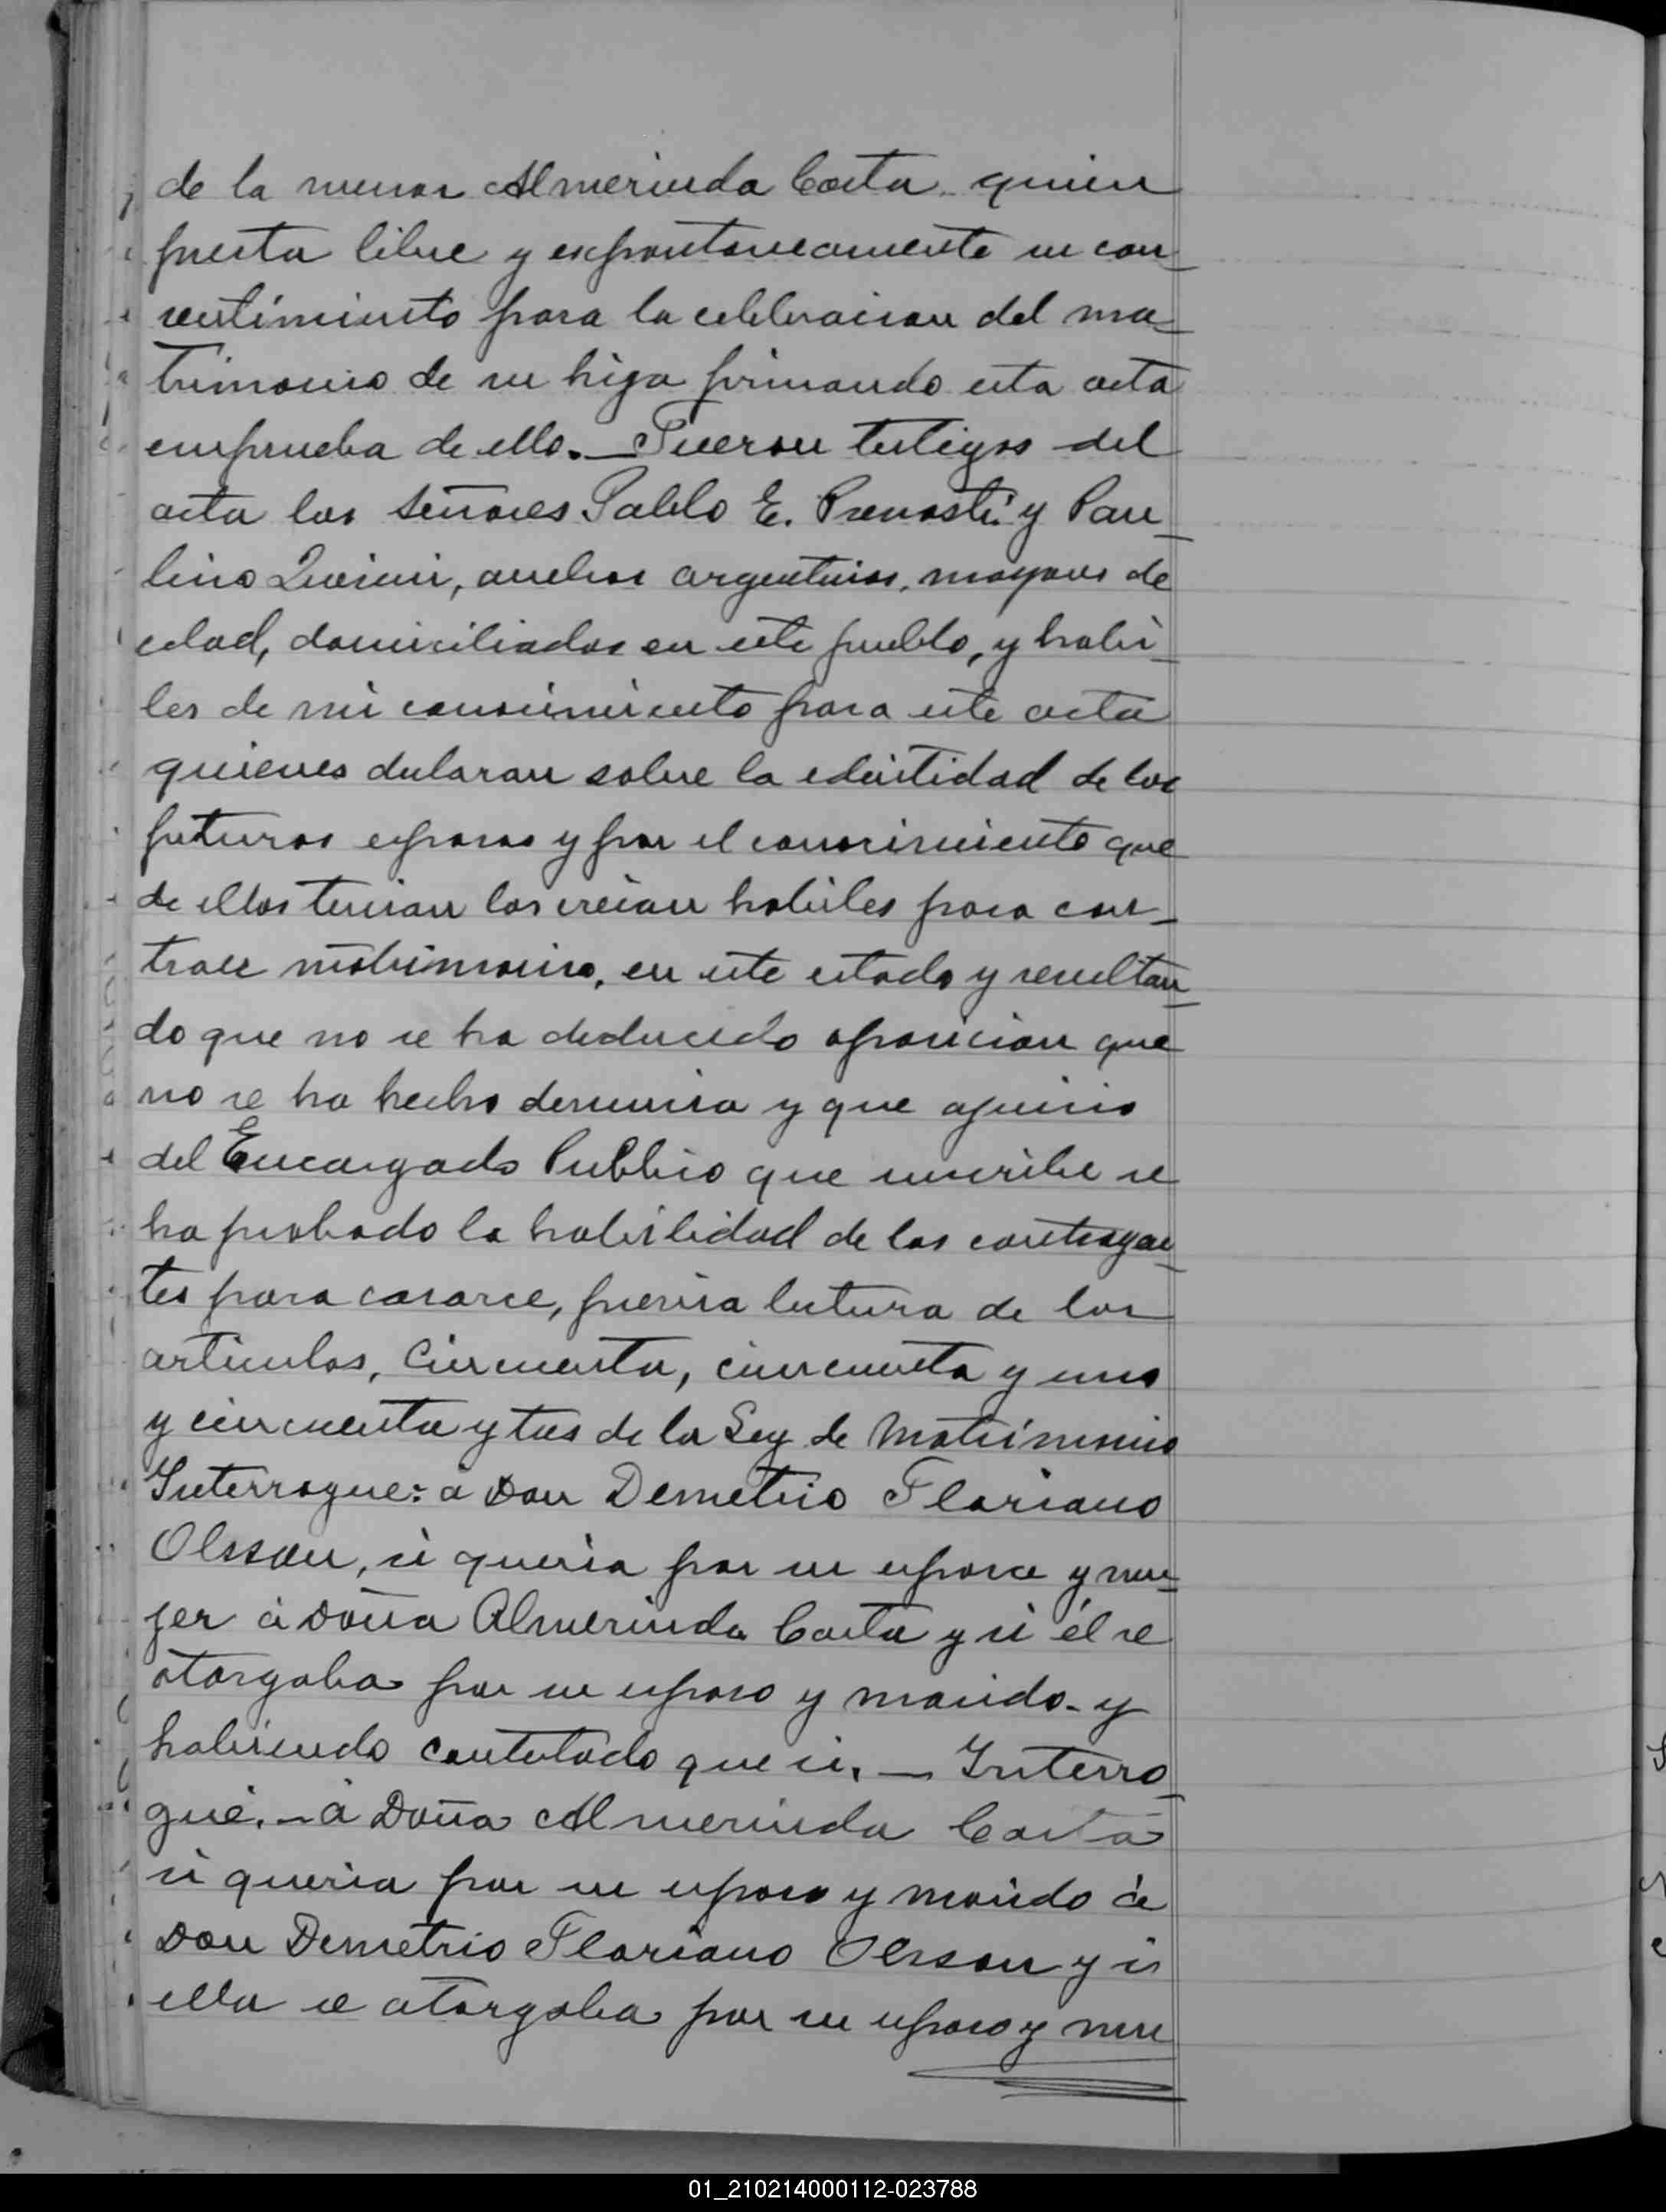 de la menor Almerinda Costa quien
presta libre y expontaneamente su con_
sentimiento para la celebracion del ma_
trimonio de su hija firmando esta acta
enprueba de ello. _ Fueron testigos del
acta los señores Pablo E. y Pau_
lino ambos argentinos, mayores de
edad, domiciliados en este pueblo, y habi_
les de mi conosimiento para este acta
quienes declaran sobre la edentidad de los
futuros esposos y por el conosimiento que
de ellos tenian los creian habiles para con_
traer matrimonio, en este estado y resultan_
do que no se ha deducido oposicion que
no se ha hecho denuncia y que ajuicio
del Encargado Publico que suscribe se
ha probado la habilidad de los contrayen_
tes para casarce, previa lectura de los
articulos, Cincuenta, cincuenta y uno
y cincuenta y tres de la Ley de Matrimonio
Interrogue: a Don Demetrio Floriano
Olsson, si queria por su esposa y mu_
jer á Doña Almerinda Costa y si él se
otorgaba por su esposo y marido - y
habiendo contestado que si. _ Interro_
gué. - á Doña Almerinda Costa
si queria por su esposo y marido á
Don Demetrio Floriano Olsson y si
ella se otorgaba por su esposo y mu
01_210214000112-023788